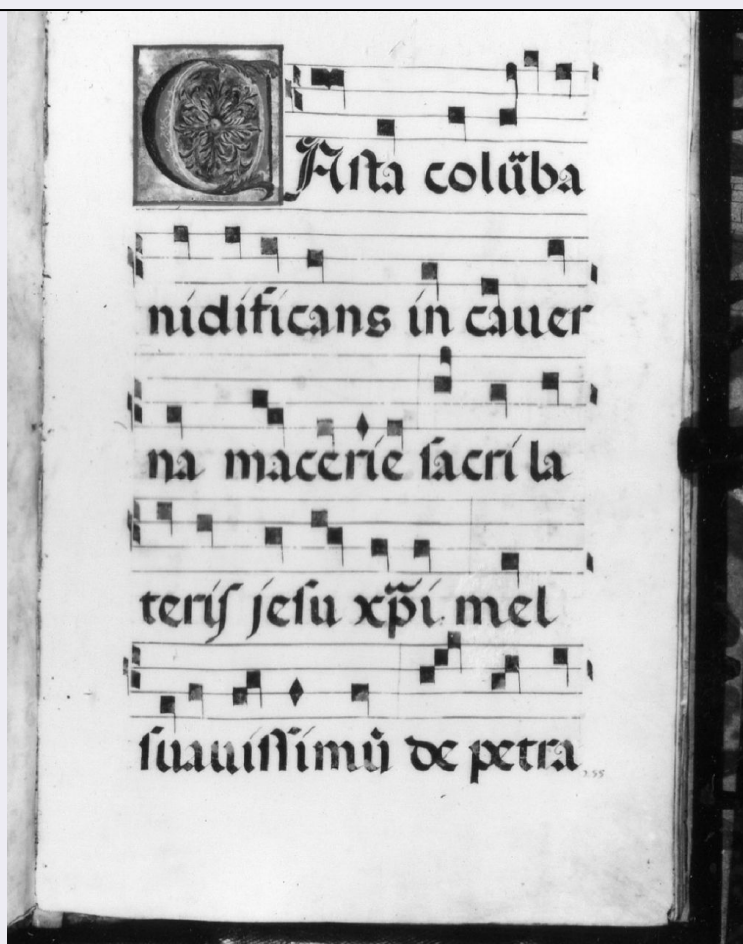 CAſta colũba
nidificans in cauer
na macerie ſacri la
teriſ jeſu xp̃i mel
ſuauiſſimũ de petra
255